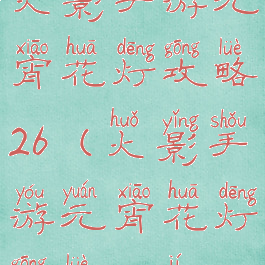 火影手游元
xiāo huā dēng gōng lüè
宵花灯攻略
huǒ yǐng shǒu
26（火影手
yóu yuán xiāo huā dēng
游元宵花灯
gōng lüè